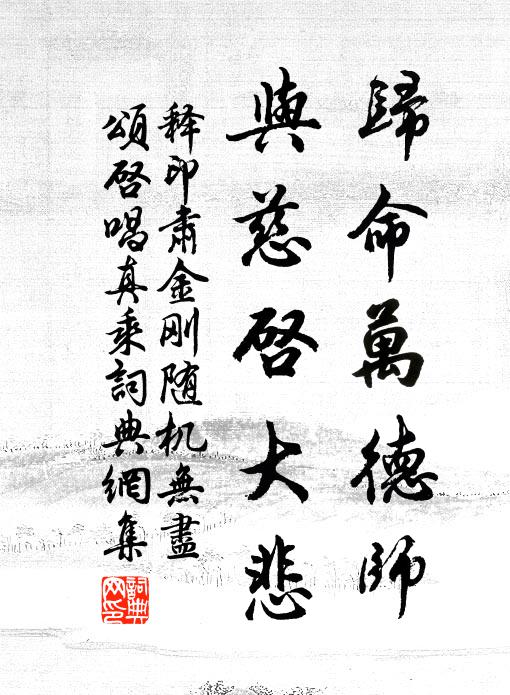 歸命萬德師
與慈啓大悲
釋印肅金剛随机無盡
頌啓唱真乘詞典網集
詞典网印